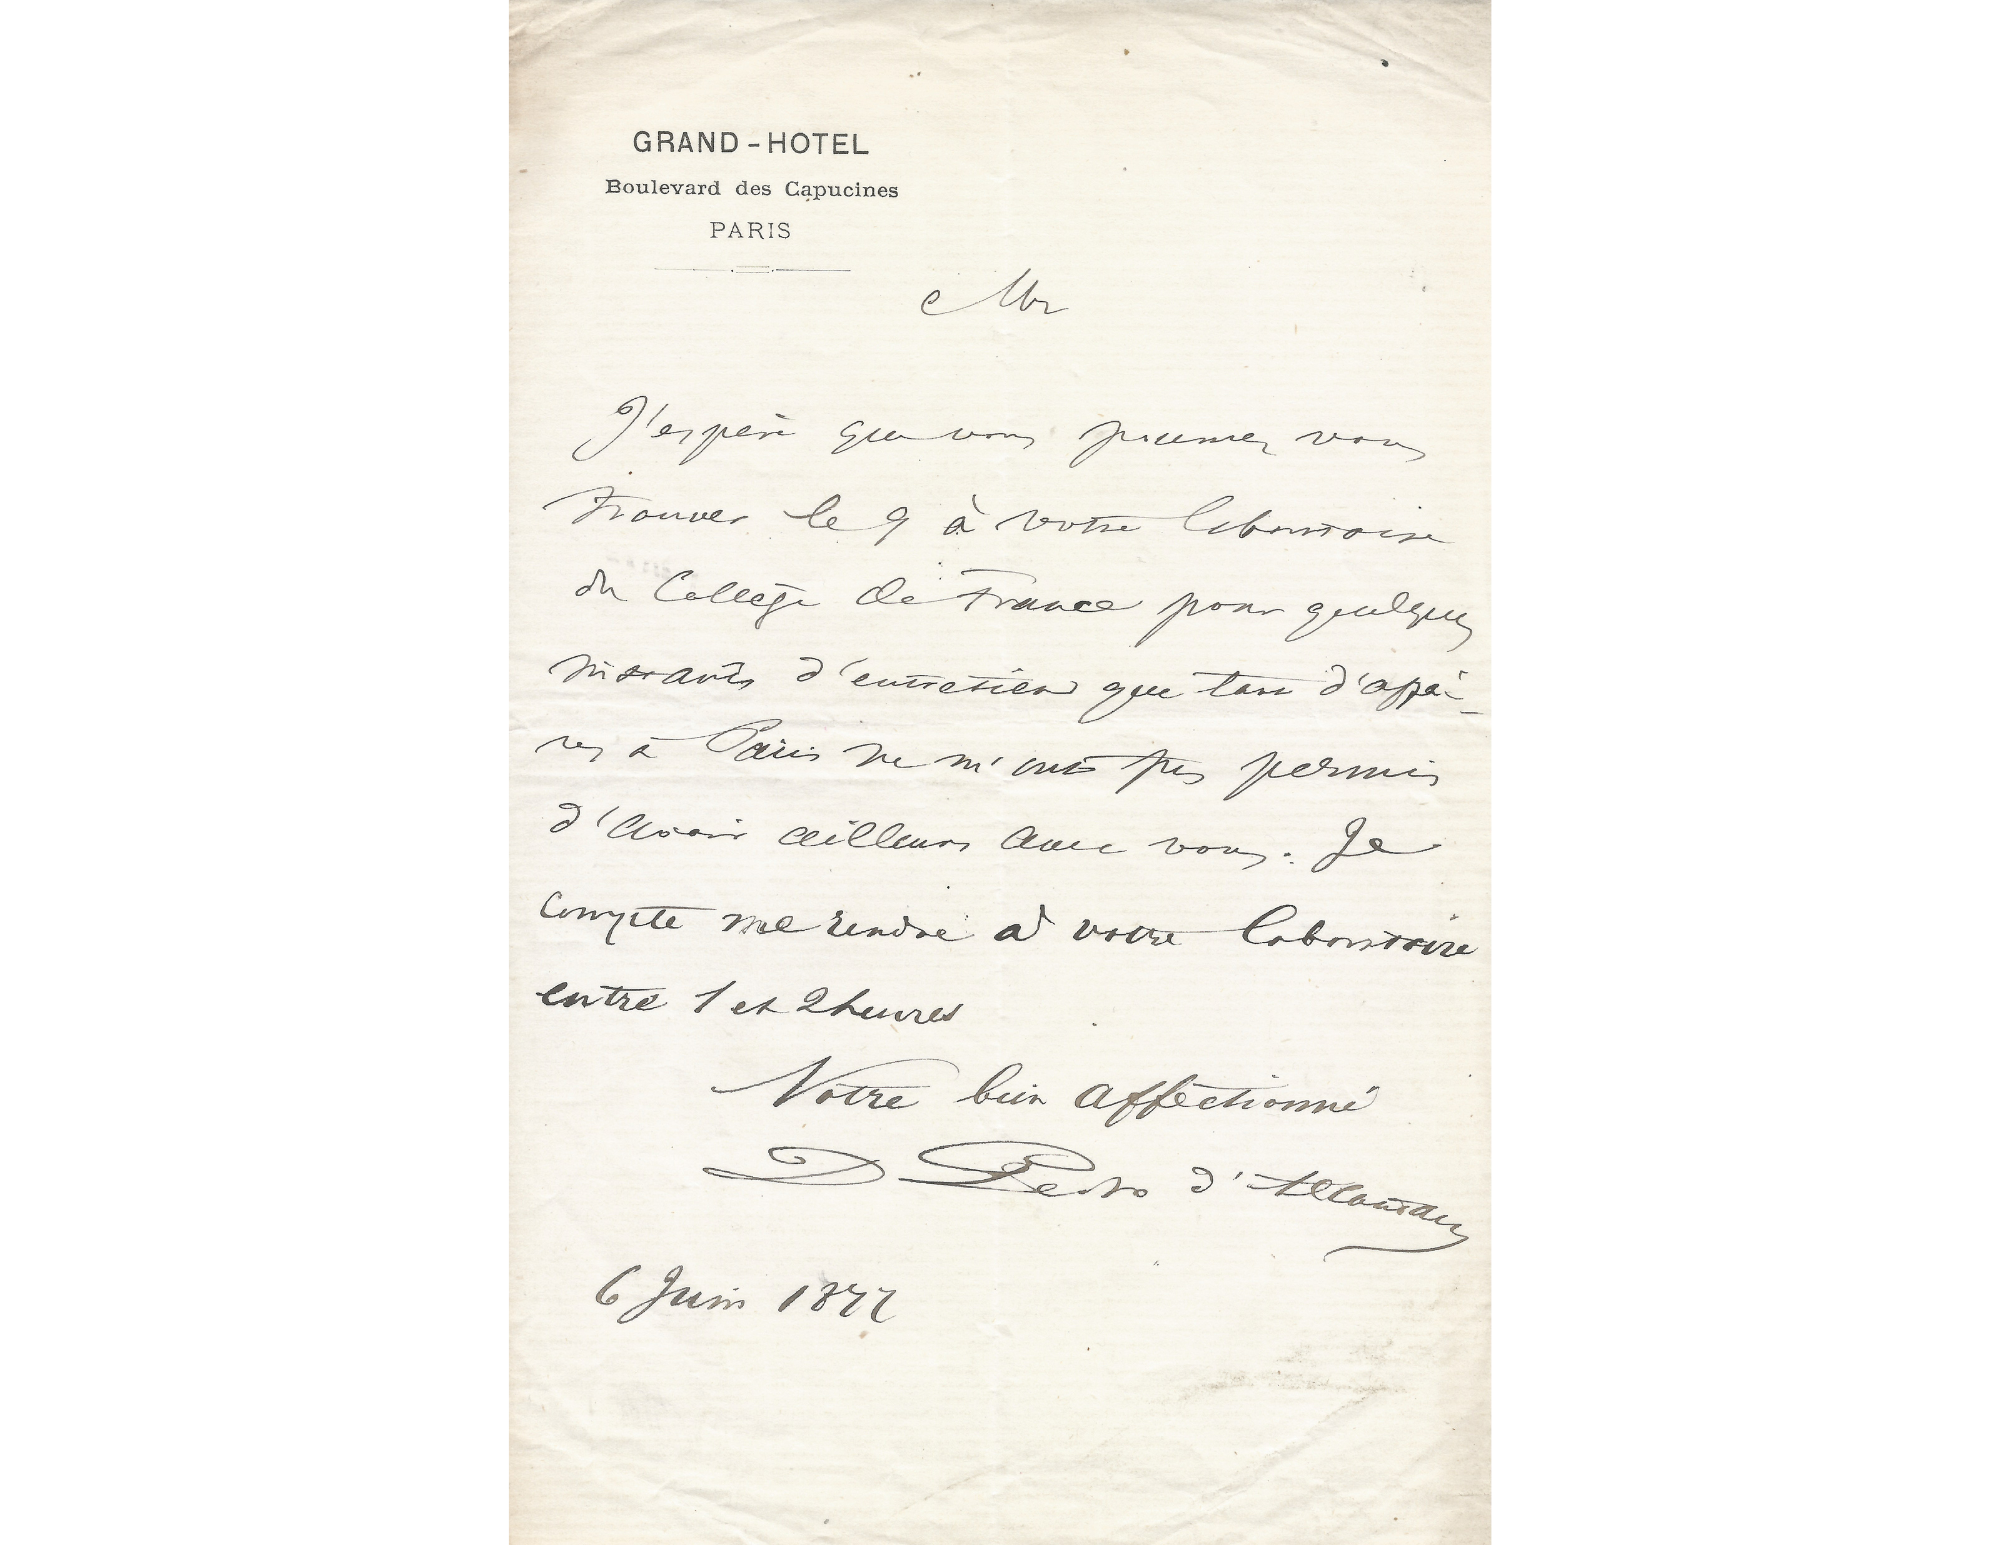 GRAND-HOTEL
Boulevard des Capucines
PARIS
Mr
J'espère que vous pourrez vous
trouver le 9 à votre laboratoire
du Collège de France pour quelques
instants d'entretien que tant d'affai-
res à Paris ne m'ont pas permis
d'avoir ailleurs avec vous. Je
compte me rendre à votre laboratoire
entre 1 et 2 heures
Votre bien affectionné
D Pedro d'Alcantara
6 Juin 1877